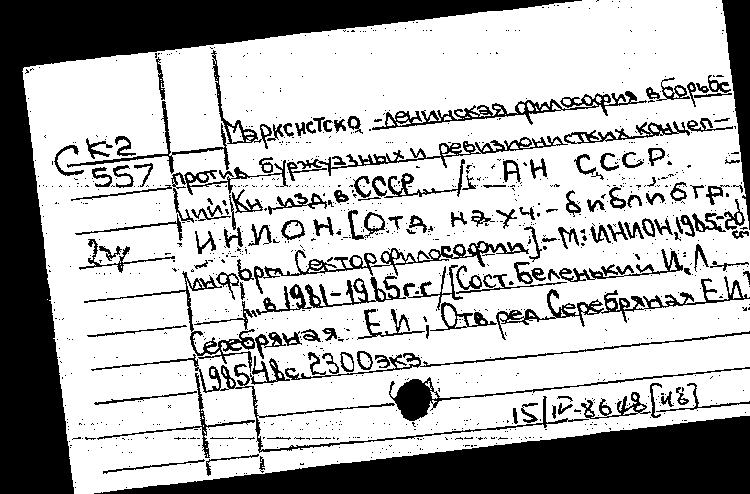 Марксистско-ленинская философия в борьбе
С К-2
557
против буржуазных и ревизионистких концеп-
ций: Кн., изд. в СССР... / АН СССР.
ИНИОН. [Отд. науч.-библиогр.
2 чу
информ. Сектор философии]. - М: ИНИОН, 1985-20
...в 1981-1985г.г /[Сост. Беленький И.Л.,
Серебряная Е.И; Отв. ред Серебряная Е.И]
1985 48с. 2300экз.
15/IV-8648[48]